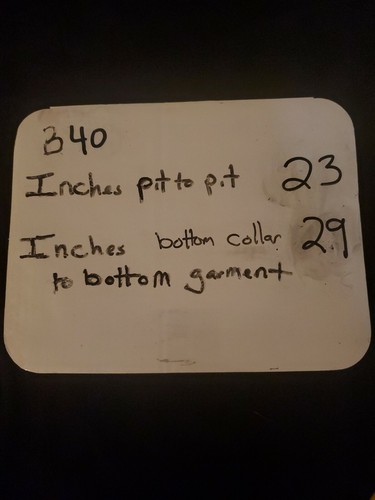 340
Inches pit to pit 23
Inches bottom collar 29
to bottom garment